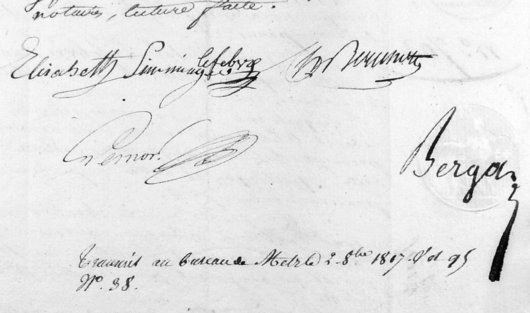 notaire, lecture faite.
Elisabeth Simminger Lefebvre
Pernot
Berga
Transcrit au bureau de Metz le 2 8bre 1817. vol 95
No. 38.